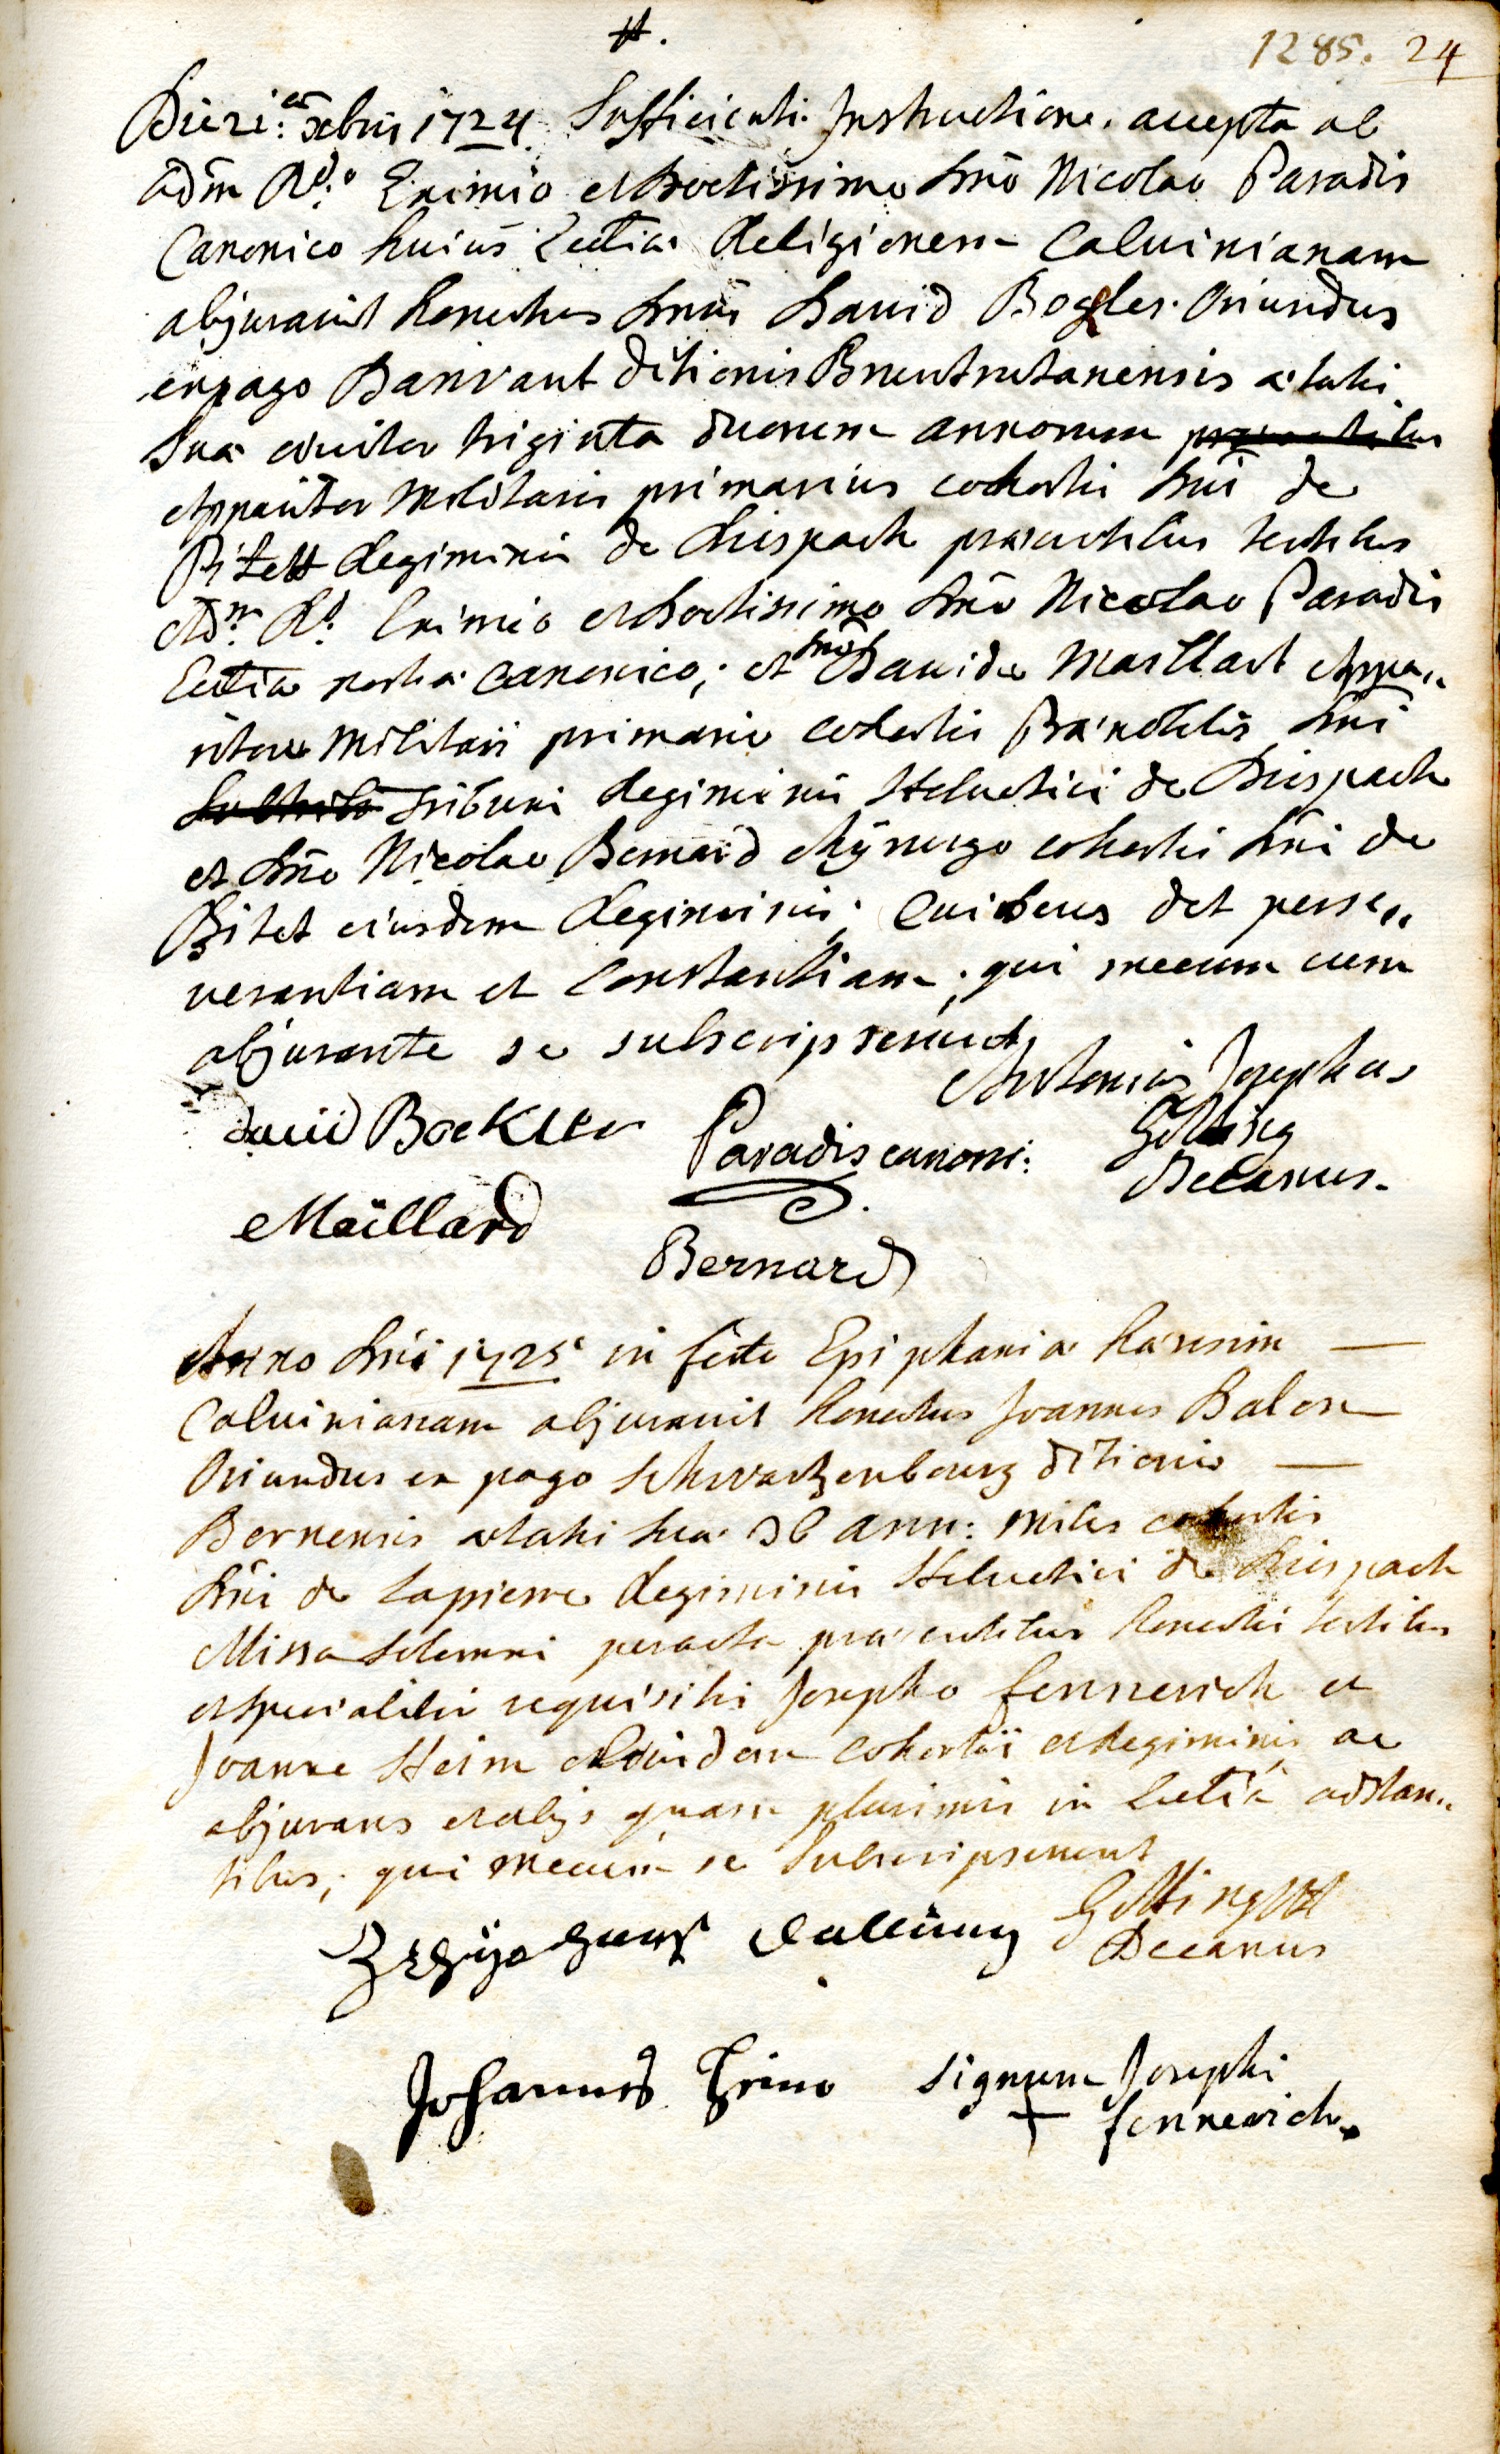 #.
1285. 24
Die 21: Xbris 1724. Sufficienti Instructione accepta ab
adm Rdo Eximio et Doctissimo Dno Nicolao Paradis
Canonico huius Ecctiæ Religionem Calvinianam
abjuravit honestus Dnus David Bogler. Oriundus
ex pago Banvant ditionis Bruntrutanensis ætatis
suæ circiter triginta duorum annorum
Apparitor Militaris primarius cohortis Dni de
Bitett Regiminis de Diespach præsentibus testibus
Adm Rd. Eximio et Doctissimo Dno Nicolao Paradis
Ecctiæ nostræ canonico; et Dno Davide Maillart Appa„
ritore Militari primario cohortis Prænobilis Dni
Tribuni Regiminis Helvetici de Diespach
et Dno Nicolao Bernard Chyrurgo cohortis Dni de
Bitet eiusdem Regiminis; Cui Deus det perse„
verantiam et Constantiam; qui mecum cum
abjurante se subscripserunt
Antonius Josephus
Götting
Decanus.
david Böckller
Paradis canoni:
Maillard
Bernard
Anno Dni 1725 in festo Epiphaniæ hæresim —
Calvinianam abjuravit honestus Joannes Balon
Oriundus ex pago Schwartzenbourg ditionis —
Bernensis ætatis suæ 36 ann: Miles cohortis
Dni de Lapierre Regiminis Helvetici de Diespach
Missa Solemni peracta præsentibus honestis testibus
et specialiter requisitis Josepho fennerich et
Joanne Heim eiusdem cohortis et Regiminis ac
abjurans et alijs quam plurimis in Ecctia adstan„
tibus; qui mecum se Subscripserunt
Götting
Decanus
Johannes Heim
Signum Josephi
+ fennerich.